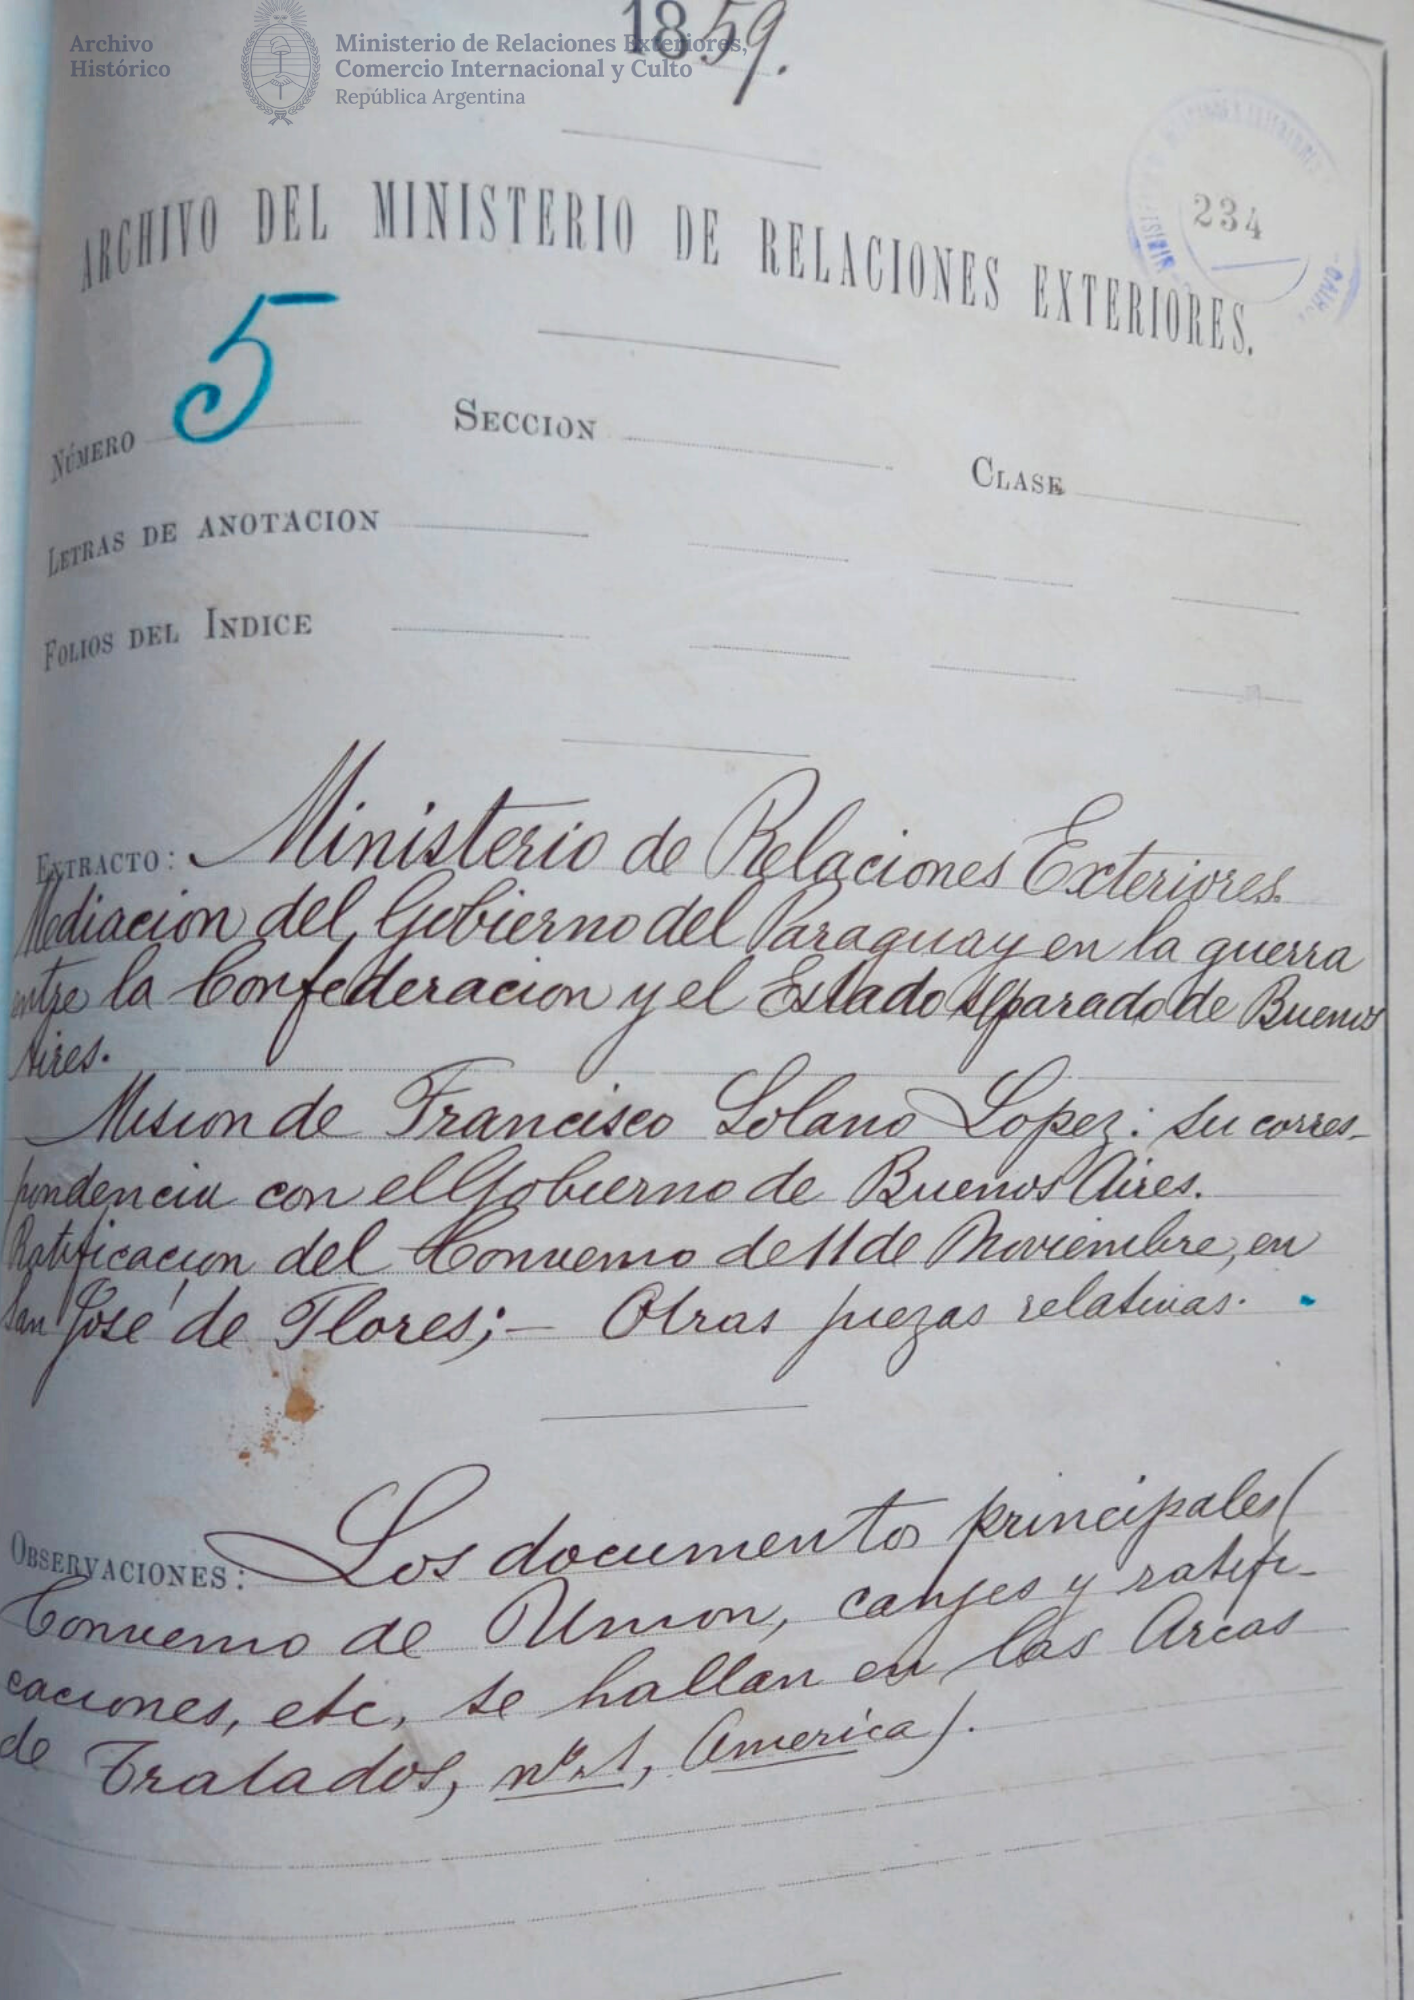 Archivo
Histórico
Ministerio de Relaciones Exteriores,
Comercio Internacional y Culto
República Argentina
1859.
234
ARCHIVO DEL MINISTERIO DE RELACIONES EXTERIORES.
NÚMERO 5 SECCION CLASE
LETRAS DE ANOTACION
FOLIOS DEL INDICE
EXTRACTO: Ministerio de Relaciones Exteriores.
Mediacion del Gobierno del Paraguay en la guerra
entre la Confederacion y el Estado separado de Buenos
Aires.
Mision de Francisco Solano Lopez: su corres-
pondencia con el Gobierno de Buenos Aires.
Ratificacion del Convenio de 11 de Noviembre, en
San José de Flores;- Otras piezas relativas.
OBSERVACIONES: Los documentos principales (
Convenio de Union, canjes y ratifi-
caciones, etc, se hallan en las Arcas
de Tratados, nº 1, America).